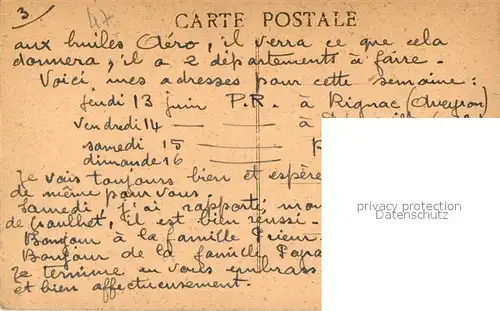 3
CARTE POSTALE
aux huiles Aéro, il verra ce que cela
donnera, il a 2 départements à faire.
Voici mes adresses pour cette semaine:
jeudi 13 juin P.R. à Rignac (Aveyron)
vendredi 14 — — à
samedi 15
dimanche 16
Je vais toujours bien et espère
de même pour vous.
Samedi j'ai rapporté mon
de Graulhet, il est bien réussi -
Bonjour à la famille Prieur.
Bonjour de la famille
Je termine en vous embrass
et bien affectueusement.
privacy protection
Datenschutz